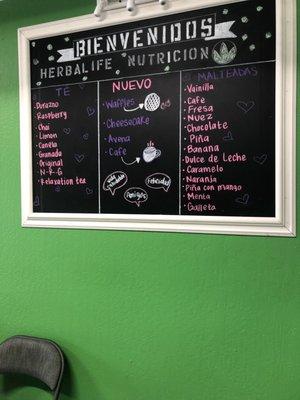 BIENVENIDOS
HERBALIFE NUTRITION
TE
Durazno
Raspberry
Chai
Limon
Canela
Granada
Original
N-R-G
Relaxation tea
NUEVO
Waffles
Cheesecake
Avena
Cafe
Felicidad
Amigos
MALTEADAS
Vainilla
Cafe
Fresa
Nuez
Chocolate
Piña
Banana
Dulce de Leche
Caramelo
Naranja
Piña con mango
Menta
Galleta